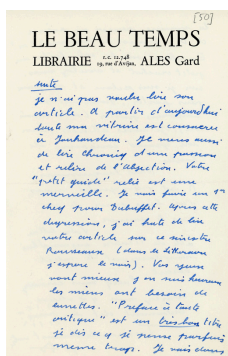 [50]
LE BEAU TEMPS
LIBRAIRIE r.c. 12.748 19, rue d'Avéjan, ALES Gard
suite
je n'ai pas voulu lire son
article. A partir d'aujourd'hui
toute ma vitrine est consacrée
à Jouhandeau. Je viens aussi
de lire Chronique d'une passion
et relire de l'Abjection. Votre
"petit guide" relié est une
merveille. Je vais faire un 1er
chap pour Dubuffet. Après cette
digression, j'ai hâte de lire
votre article sur ce sinistre
Rousseaux (dans la littérature
j'espère le mois). Vos yeux
vont mieux j'en suis heureux
les miens ont besoin de
lunettes. "Préface à toute
critique" est un très bon titre
je dis ce que je pense parfois
même temps. Je suis dans